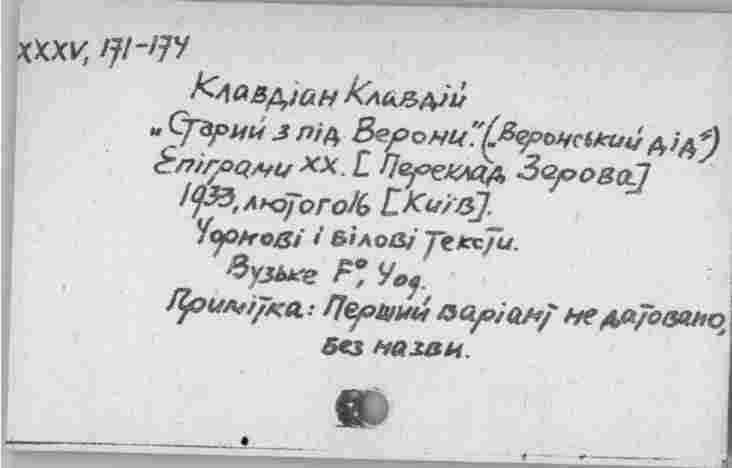 XXXV, 171-174
Клавдіан Клавдій
„Старий з під Верони." („Веронський дід")
Епіграми XX. [Переклад Зерова]
1933, лютого 16 [Київ].
Чорнові і білові тексти.
Вузьке F°, 4 од.
Примітка: Перший варіант не датовано,
без назви.